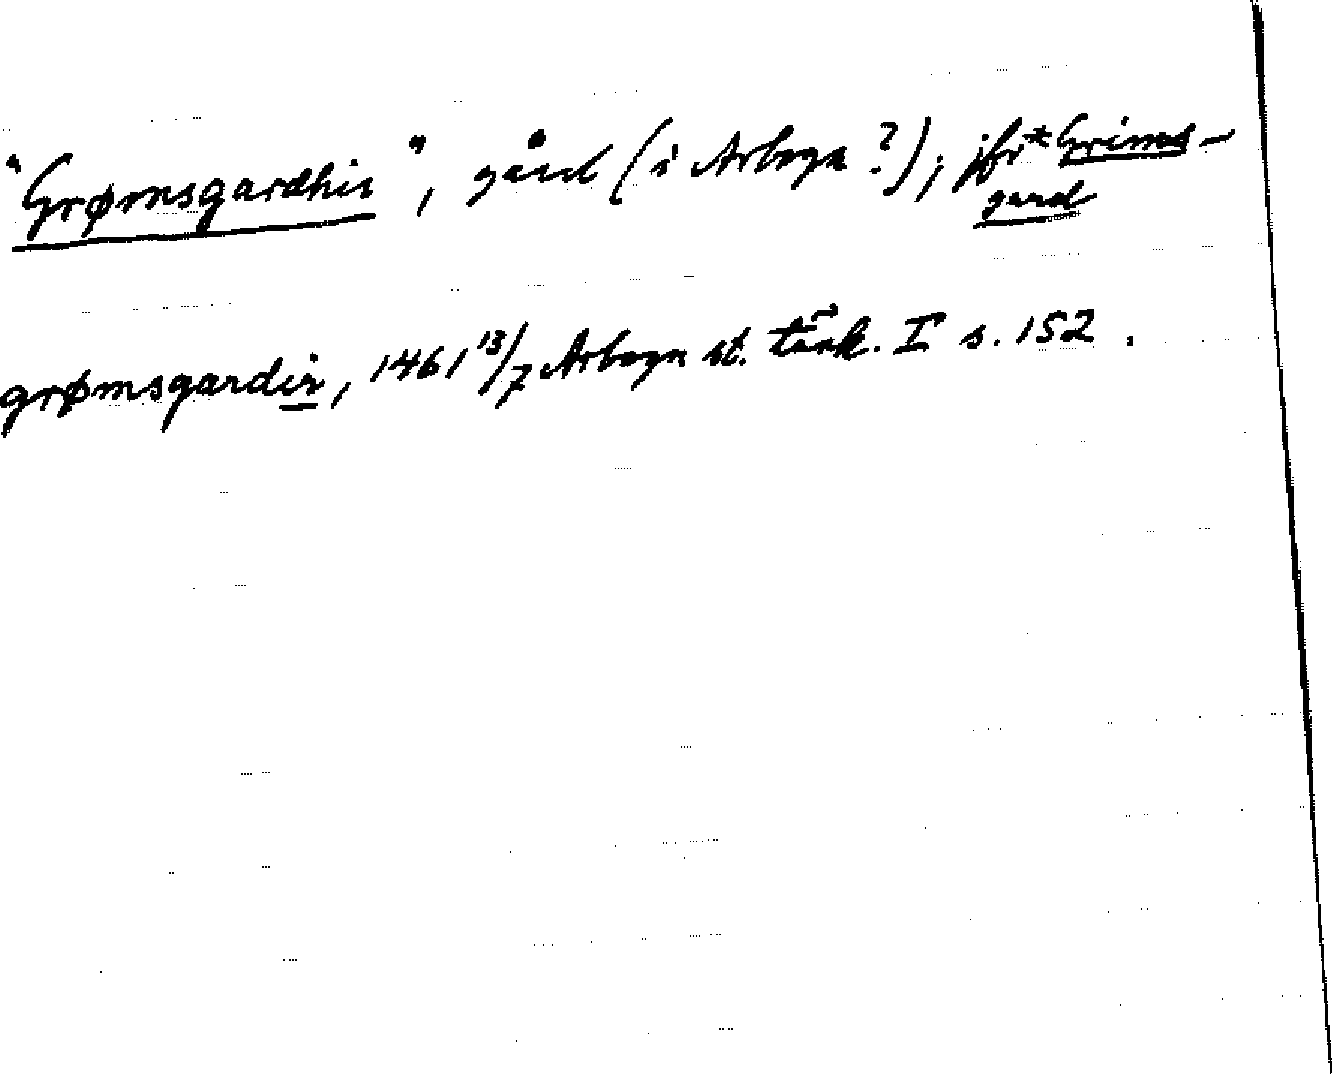 "Grømsgardhir", gård (i Arboga?); jfr *Grims-
gard
grømsgardir, 1461 13/7 Arboga st. tänk. I s. 152.